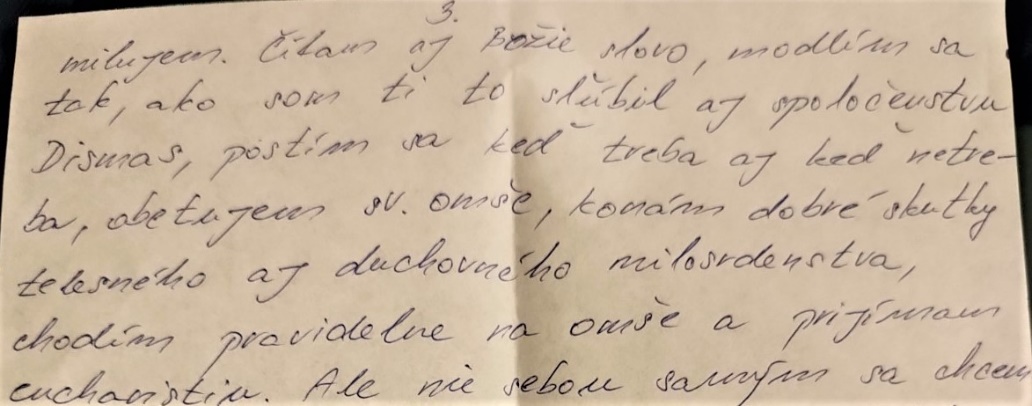 3.
milujem. Čítam aj Božie slovo, modlím sa
tak, ako som ti to slúbil aj spoločenstvu
Dismas, postím sa keď treba aj keď netre-
ba, obetujem sv. omše, konám dobré skutky
telesného aj duchovného milosrdenstva,
chodím pravidelne na omše a prijímam
eucharistiu. Ale nie sebou samým sa chcem